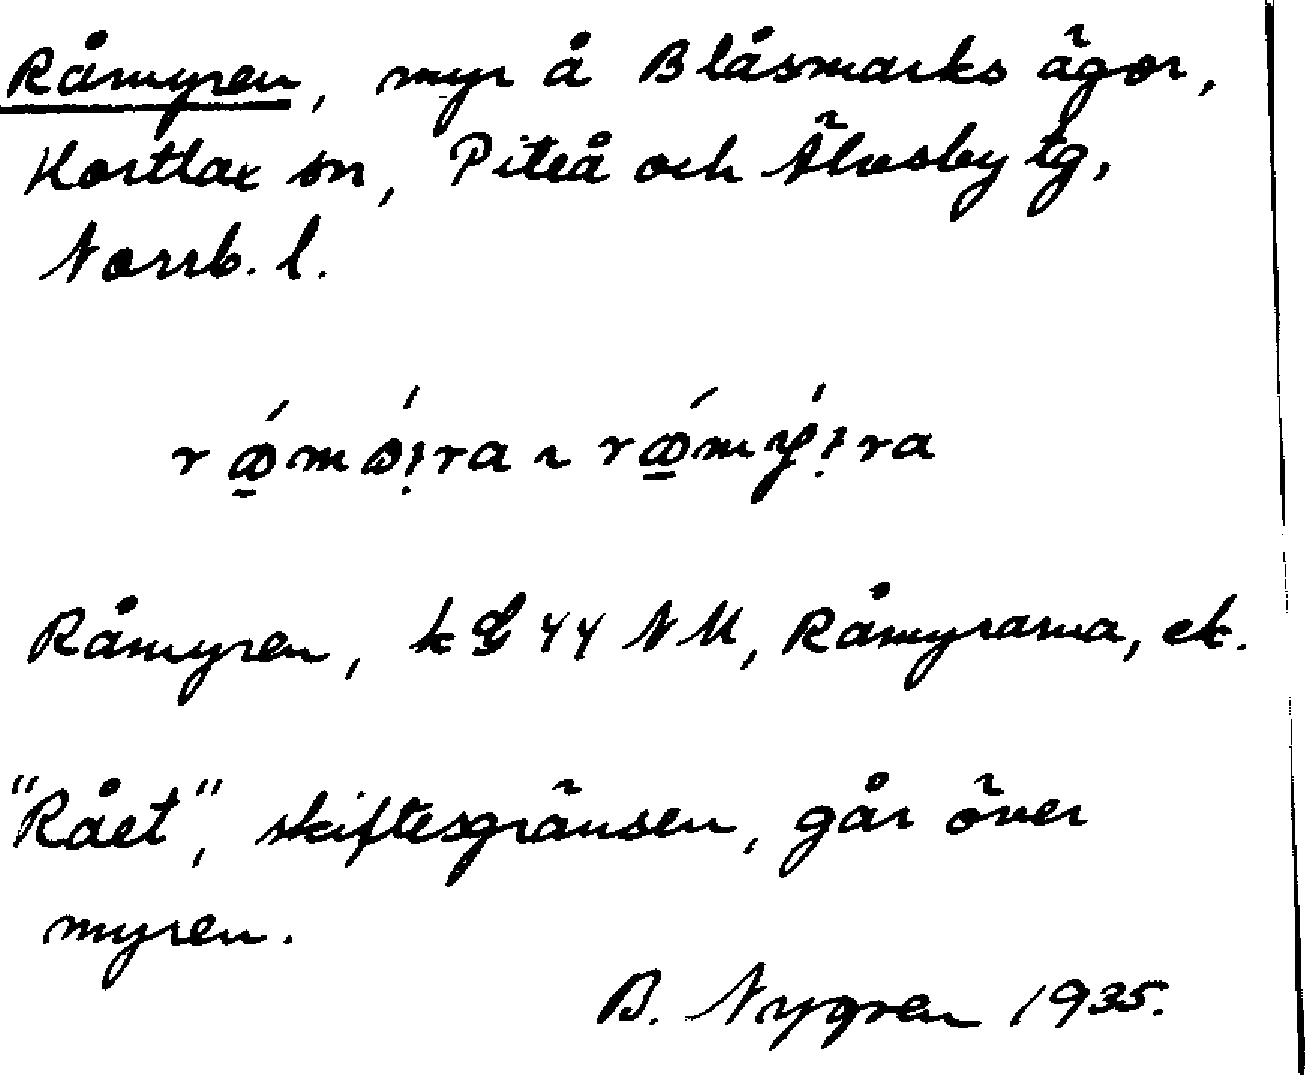 Råmyren, myr å Blåsmarks ägor,
Hortlax sn, Piteå och Älvsby tg,
Norrb. l.
Råmyren, k 44 NM, Råmyrarna, ek.
"Rået", skiftesgränsen, går över
myren.
B. Nygren 1935.